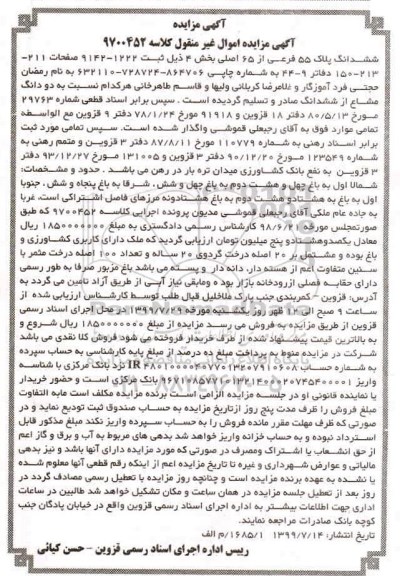 آگهی مزایده
آگهی مزایده اموال غیر منقول کلاسه ۹۷۰۰۴۵۲
ششدانگ پلاک ۵۵ فرعی از ۶۵ اصلی بخش ۴ ذیل ثبت ۱۲۲۲-۹۱۴۲ صفحات ۲۱۱-
۲۱۳-۱۵۰ دفاتر ۹-۴۴ به شماره چاپی ۸۶۴۷۰۶-۷۲۸۷۲۴-۶۳۲۱۱۰ به نام رمضان
حجتی فرد آموزگار و غلامرضا کربلائی ولیها و قاسم طاهرخانی هرکدام نسبت به دو دانگ
مشاع از ششدانگ صادر و تسلیم گردیده است. سپس برابر اسناد قطعی شماره ۲۹۷۶۳
مورخ ۸۰/۵/۱۳ دفتر ۱۸ قزوین و ۹۱۹۱۸ مورخ ۷۸/۱/۲۴ دفتر ۹ قزوین مع الواسطه
تمامی موارد فوق به آقای رجبعلی قموشی واگذار شده است. سپس تمامی مورد ثبت
برابر اسناد رهنی به شماره ۱۱۰۷۷۹ مورخ ۸۷/۸/۱۱ دفتر ۳ قزوین و متمم رهنی به
شماره ۱۲۳۵۴۹ مورخ ۹۰/۱۲/۲۰ دفتر ۳ قزوین و ۱۳۱۰۰۵ مورخ ۹۳/۱۲/۲۷ دفتر
۳ قزوین به نفع بانک کشاورزی میدان تره بار در رهن می باشد. حدود و مشخصات:
شمالا اول به باغ چهل و هشت دوم به باغ چهل و شش، شرقا به باغ پنجاه و شش، جنوبا
اول به باغ به هشتاد و هشت دوم به باغ هشتاد و نه مرزهای فاصل اشتراکی است، غربا
به جاده عام ملکی آقای رجبعلی قموشی مدیون پرونده اجرایی کلاسه ۹۷۰۰۴۵۲ که طبق
صورتمجلس مورخه ۹۸/۶/۲۵ کارشناس رسمی دادگستری به مبلغ ۱۸۵۰۰۰۰۰۰۰ ریال
معادل یکصد و هشتاد و پنج میلیون تومان ارزیابی گردید که ملک دارای کاربری کشاورزی و
باغ بوده و مشتمل بر ۲۰ اصله درخت گردوی ۲۰ ساله و تعداد ۱۰۰ اصله درخت مثمر با
سنین متفاوت اعم از هسته دار، دانه دار و پسته می باشد باغ مزبور صرفا به طور رسمی
دارای حقابه فصلی ازرودخانه بازار بوده و مابقی نیاز آبی از طریق آزاد تامین می گردد به
آدرس: قزوین - کمربندی جنب پارک ملاخلیل قبال طلب توسط کارشناس ارزیابی شده از
ساعت ۹ صبح الی ۱۲ ظهر روز یکشنبه مورخه ۱۳۹۹/۷/۲۹ در محل اجرای اسناد رسمی
قزوین از طریق مزایده به فروش می رسد مزایده از مبلغ ۱۸۵۰۰۰۰۰۰۰ ریال شروع و
به بالاترین قیمت پیشنهاد شده از طرف خریدار فروخته می شود فروش کلا نقدی می باشد
شرکت در مزایده منوط به پرداخت مبلغ ده درصد از مبلغ پایه کارشناسی به حساب سپرده
نزد بانک مرکزی با شناسه
بانک مرکزی است و حضور خریدار
یا نماینده قانونی او در جلسه مزایده الزامی است برنده مزایده مکلف است مابه التفاوت
مبلغ فروش را ظرف مدت پنج روز از تاریخ مزایده به حساب صندوق ثبت تودیع نماید و در
صورتی که ظرف مهلت مقرر مانده فروش را به حساب سپرده واریز نکند مبلغ مذکور قابل
استرداد نبوده و به حساب خزانه واریز خواهد شد بدهی های مربوط به آب و برق و گاز اعم
از حق انشعاب یا اشتراک ومصرف در صورتی که مورد مزایده دارای آنها باشد و نیز بدهی
مالیاتی و عوارض شهرداری و غیره تا تاریخ مزایده اعم از اینکه رقم قطعی آنها معلوم شده
یا نشده به عهده برنده مزایده است و چنانچه روز مزایده با تعطیل رسمی مصادف گردد در
روز بعد از تعطیل جلسه مزایده در همان ساعت و مکان تشکیل خواهد شد طالبین در ساعات
اداری جهت اطلاعات بیشتر به اداره اجرای اسناد رسمی قزوین واقع در خیابان پادگان جنب
کوچه بانک صادرات مراجعه نمایند.
تاریخ انتشار: ۱۳۹۹/۷/۱۴ ۱۶۸۵/۱/م الف
رییس اداره اجرای اسناد رسمی قزوین - حسن کیائی